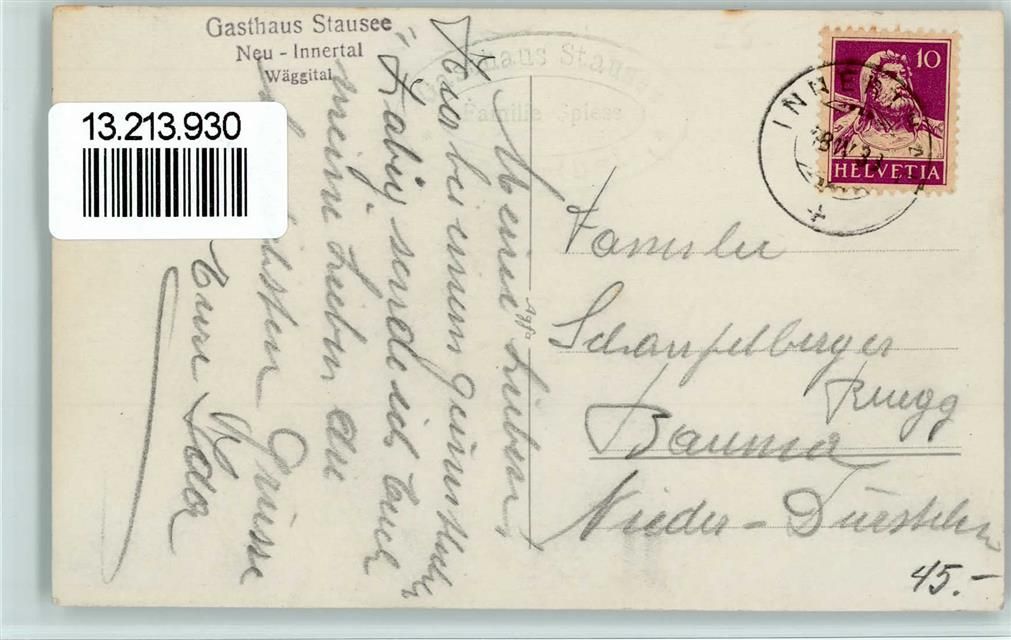 Gasthaus Stausee
Neu - Innertal
Wäggital
13.213.930
Gasthaus Stausee
Familie Spiess
10
HELVETIA
INNERTAL
Meine Lieben,
bei einem
Zabig sende ich Euch
meine Lieben die
besten Grüsse
Eure Rosa
Agfa
Familie
Schaufelberger
Ruegg
Bauma
Nieder - Dürstelen
45.-